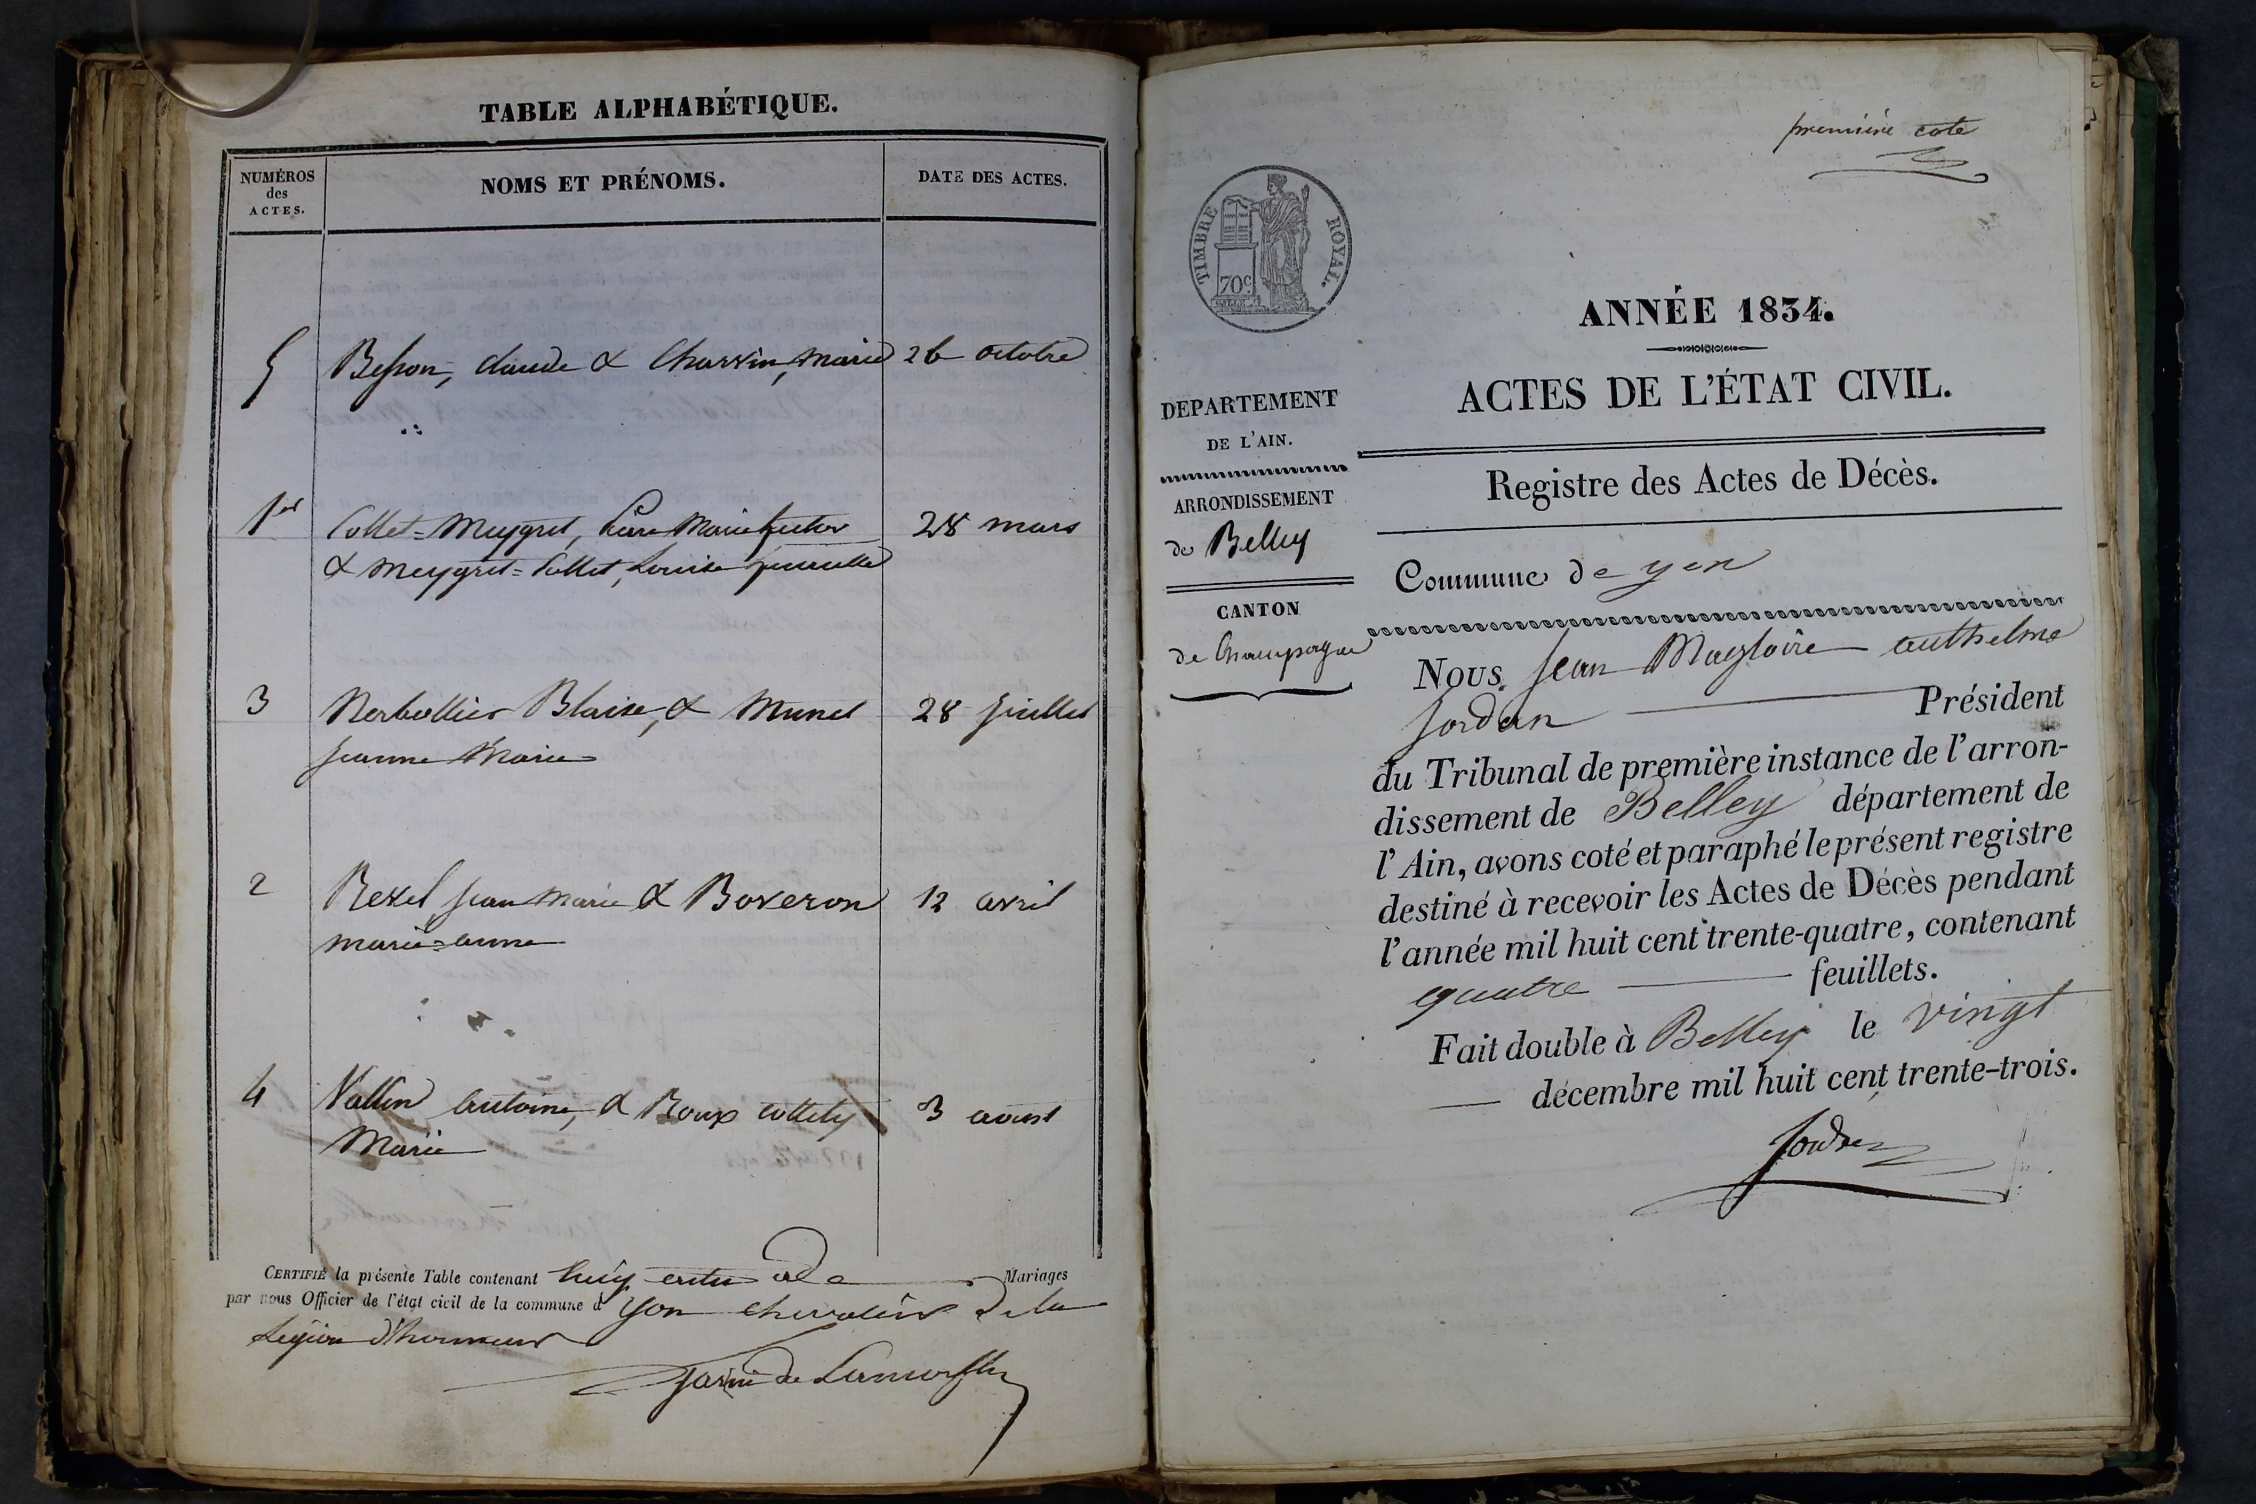 TABLE ALPHABÉTIQUE.
NUMÉROS
des
ACTES.
NOMS ET PRÉNOMS.
DATE DES ACTES.
5 Besson, claude & Charvin, Marie 26 octobre
1er Collet=Meygret, Pierre Marie 28 mars
& Meygret=Collet, Louise
3 Blaise, & Munet 28 juillet
jeanne Marie
2 jean Marie & Boveron 12 avril
marie=anne
4 antoine, & Roux 3 aoust
Marie
CERTIFIÉ la présente Table contenant Mariages
par nous Officier de l'état civil de la commune d' yon chevalier de la
Légion d'honneur
première cote
TIMBRE ROYAL.
70c
ANNÉE 1834.
ACTES DE L'ÉTAT CIVIL.
Registre des Actes de Décès.
DEPARTEMENT
DE L'AIN.
ARRONDISSEMENT
de Belley
CANTON
de Champagne
Commune de yon
Nous, Jean Magloire anthelme
Jordan Président
du Tribunal de première instance de l'arron-
dissement de Belley département de
l'Ain, avons coté et paraphé le présent registre
destiné à recevoir les Actes de Décès pendant
l'année mil huit cent trente-quatre, contenant
quatre feuillets.
Fait double à Belley le vingt
décembre mil huit cent trente-trois.
Jordan